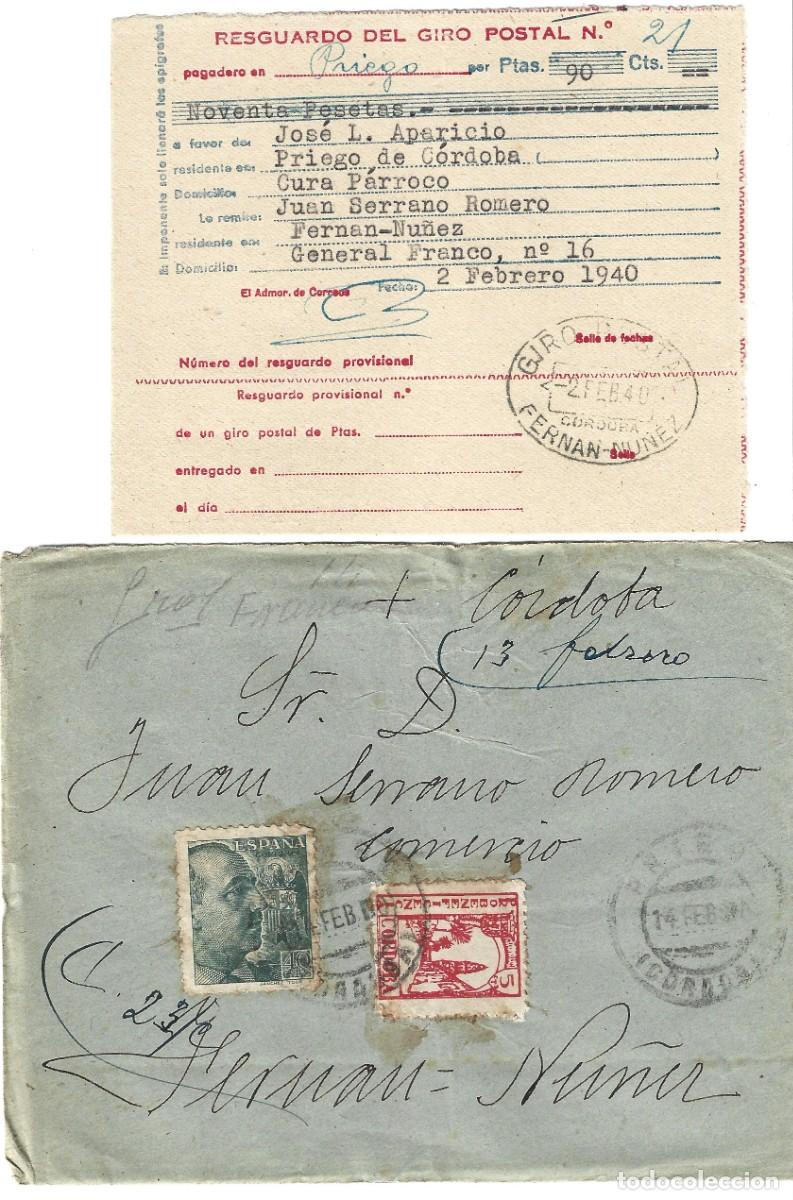 RESGUARDO DEL GIRO POSTAL N.° 21
pagadero en Priego por Ptas. 90 Cts. --
Noventa Pesetas.-
a favor de: José L. Aparicio
residente en: Priego de Córdoba (
Domicilio: Cura Párroco
Le remite: Juan Serrano Romero
residente en: Fernan-Nuñez
Domicilio: General Franco, nº 16
Fecha: 2 Febrero 1940
El Admor. de Correos
El imponente solo llenará los epígrafes
Sello de fechas
GIRO POSTAL
2-2.FEB.40
CORDOBA
FERNAN-NUÑEZ
Número del resguardo provisional
Resguardo provisional n.°
de un giro postal de Ptas.
Sello
entregado en
el día
+ Córdoba
13 febrero
Sr. D.
Juan Serrano Romero
Comercio
ESPAÑA
CORREOS
40
SANCHEZ TODA
PRO BENEFICENCIA
CORDOBA
5
14 FEB
(CORDOBA)
Fernan-Nuñez
todocoleccion